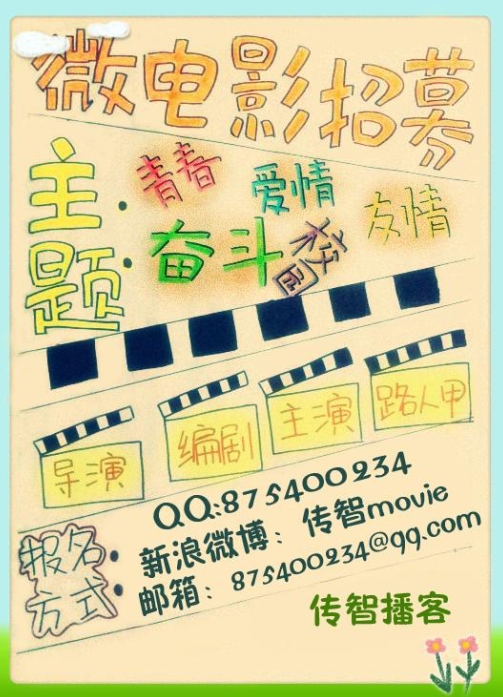 微电影招募
主题:
青春
爱情
友情
奋斗
校园
导演
编剧
主演
路人甲
报名方式:
QQ:875400234
新浪微博：传智movie
邮箱：875400234@qq.com
传智播客